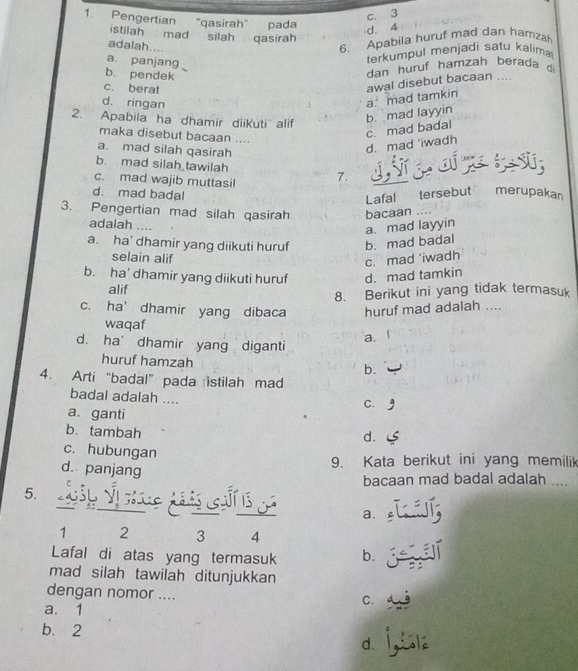 1. Pengertian "qasirah" pada
istilah mad silah qasirah
adalah....
a. panjang
b. pendek
c. berat
d. ringan
2. Apabila ha dhamir diikuti alif
maka disebut bacaan ....
a. mad silah qasirah
b. mad silah tawilah
c. mad wajib muttasil
d. mad badal
3. Pengertian mad silah qasirah
adalah ....
a. ha' dhamir yang diikuti huruf
selain alif
b. ha' dhamir yang diikuti huruf
alif
c. ha' dhamir yang dibaca
waqaf
d. ha' dhamir yang diganti
huruf hamzah
4. Arti "badal" pada istilah mad
badal adalah ....
a. ganti
b. tambah
c. hubungan
d. panjang
5. مَنْ ذَا الَّذِي يَشْفَعُ عِنْدَهُ إِلَّا بِإِذْنِهِ
1 2 3 4
Lafal di atas yang termasuk
mad silah tawilah ditunjukkan
dengan nomor ....
a. 1
b. 2
c. 3
d. 4
6. Apabila huruf mad dan hamzah
terkumpul menjadi satu kalimat
dan huruf hamzah berada di
awal disebut bacaan ....
a. mad tamkin
b. mad layyin
c. mad badal
d. mad 'iwadh
7. وَلَلْآخِرَةُ خَيْرٌ لَّكَ مِنَ الْأُولَى
Lafal tersebut merupakan
bacaan ....
a. mad layyin
b. mad badal
c. mad 'iwadh
d. mad tamkin
8. Berikut ini yang tidak termasuk
huruf mad adalah ....
a. ا
b. ب
c. و
d. ي
9. Kata berikut ini yang memilik
bacaan mad badal adalah ....
a. وَالسَّمَآءِ
b. النَّبِيِّيْنَ
c. فِيْهِ
d. ءَامَنُوْا